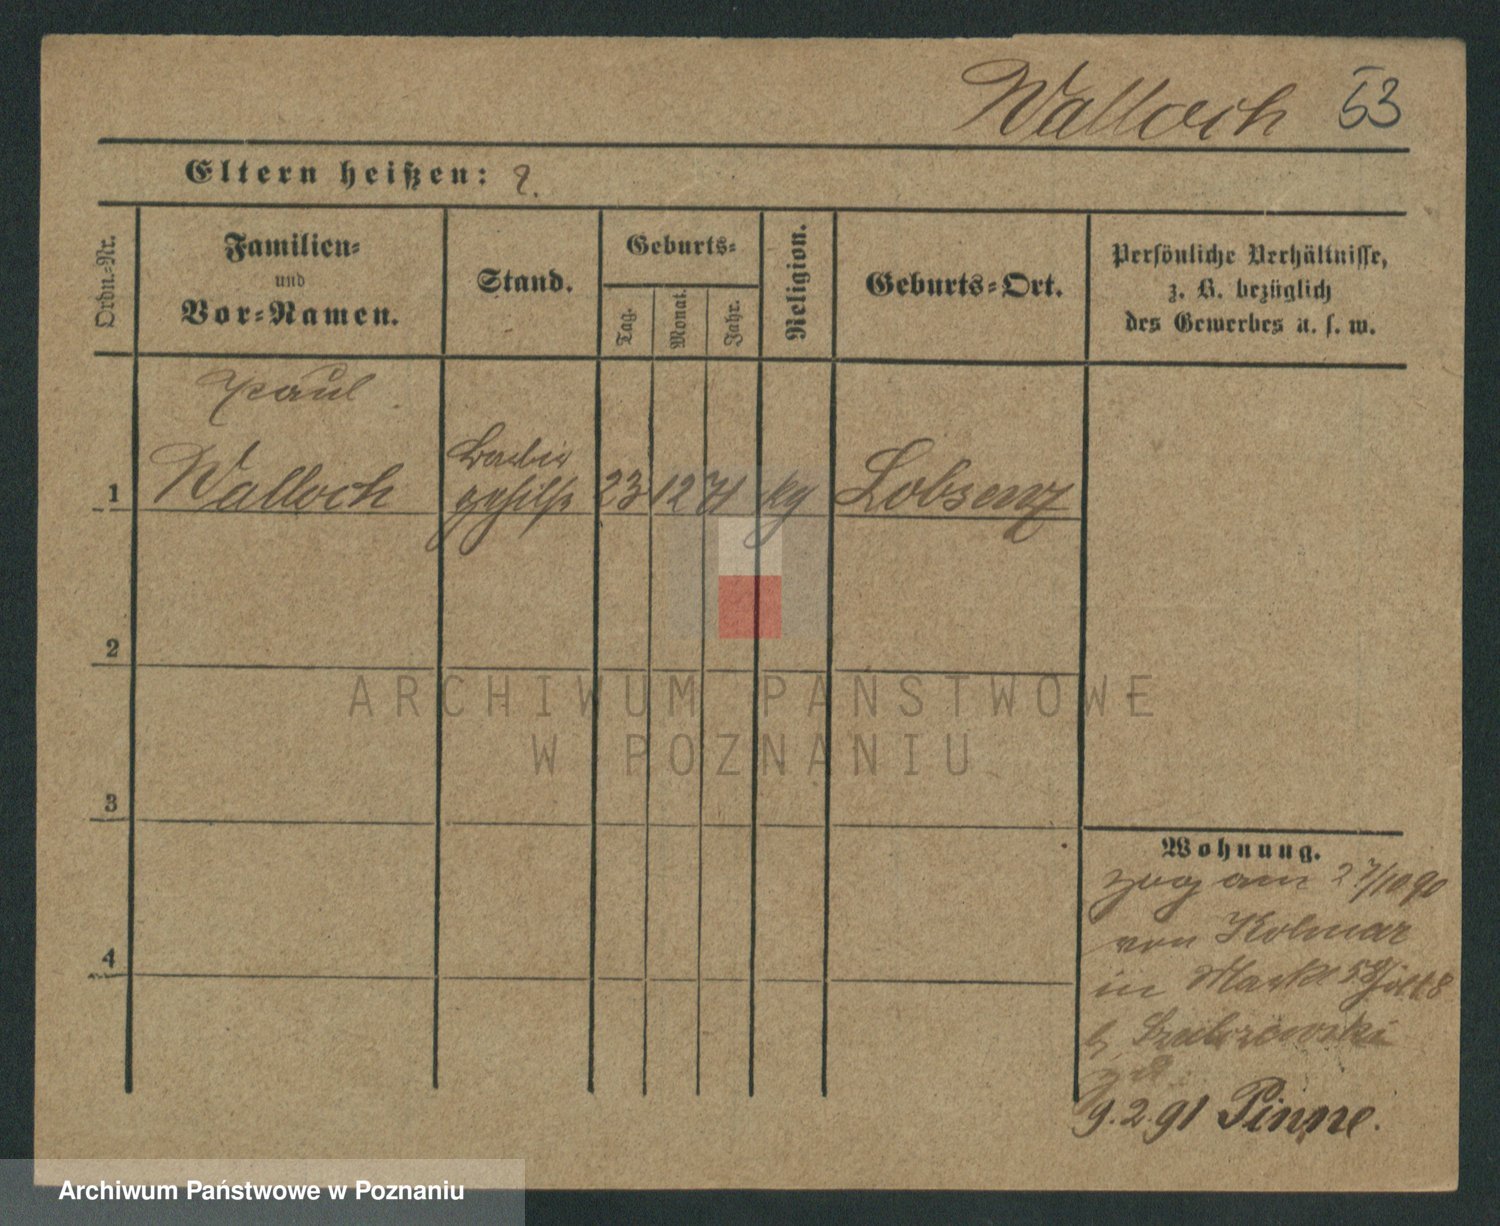 Walloch 53
Eltern heißen: ?.
Ordn.-Nr.
Familien-
und
Vor-Namen.
Stand.
Geburts-
Tag.
Monat.
Jahr.
Religion.
Geburts-Ort.
Persönliche Verhältnisse,
z. B. bezüglich
des Gewerbes u. s. w.
Paul
1 Walloch Barbier
gehilfe 23 12 71 kg Lobsenz
2
3
4
Wohnung.
zog am 27/10 90
von Kolmar
in Markt 58
b
9.2.91 Pinne.
ARCHIWUM PAŃSTWOWE
W POZNANIU
Archiwum Państwowe w Poznaniu